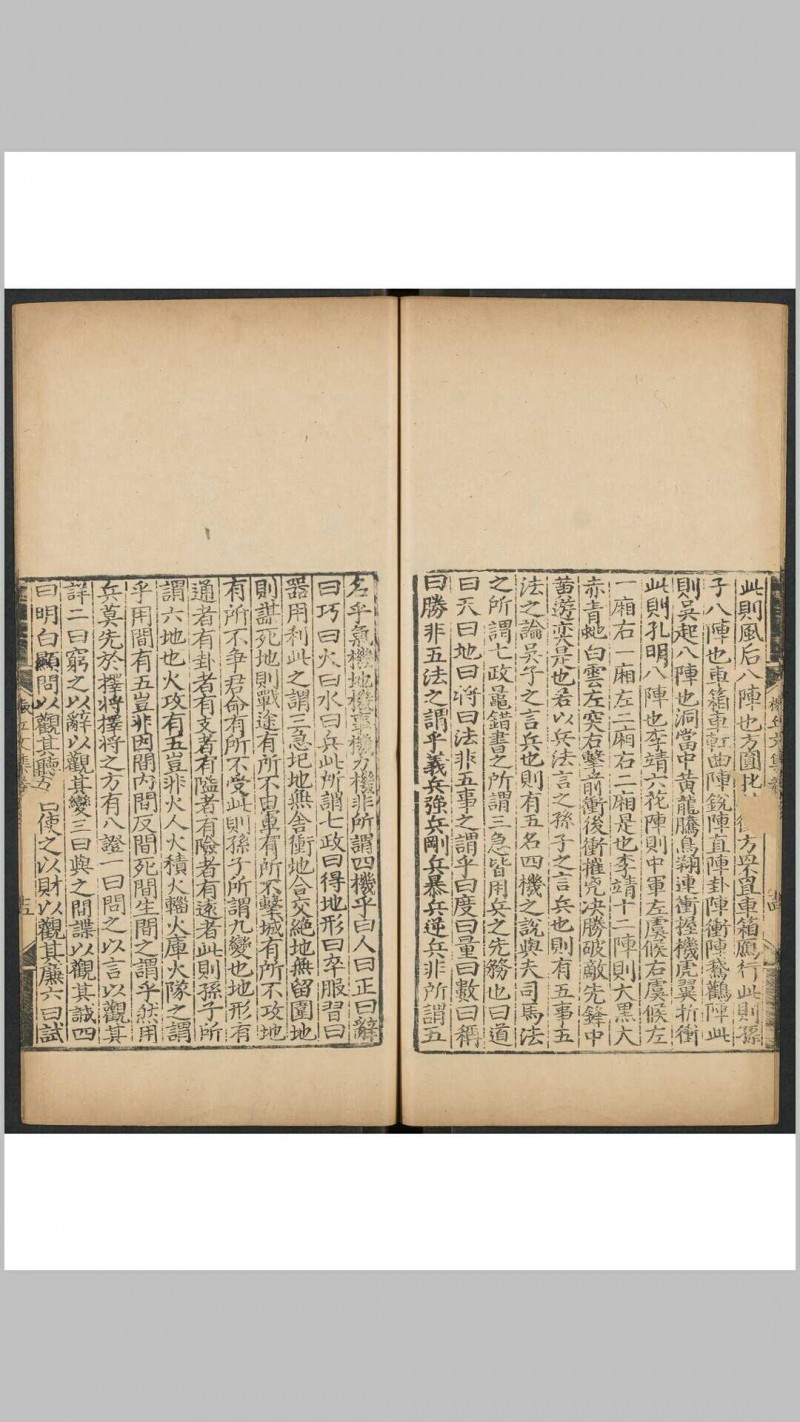 此則風后八陣也方圓牝 方罘罝車箱鴈行此則孫
子八陣也車箱車釭曲陣銳陣直陣卦陣衝陣鵞鸛陣此
則吳起八陣也洞當中黃龍騰鳥翔連衝握機虎翼折衝
此則孔明八陣也李靖六花陣則中軍左虞候右虞候左
一廂右一廂左二廂右二廂是也李靖十二陣則大黑大
赤青虵白雲左突右擊前衝後衝摧兇决勝破敵先鋒中
黃遊奕是也若以兵法言之孫子之言兵也則有五事五
法之論吳子之言兵也則有五名四機之說與夫司馬法
之所謂七政鼂錯書之所謂三急皆用兵之先務也曰道
曰天曰地曰將曰法非五事之謂乎曰度曰量曰數曰稱
曰勝非五法之謂乎義兵強兵剛兵暴兵逆兵非所謂五
名乎氣機地機事機力機非所謂四機乎曰人曰正曰辭
曰巧曰火曰水曰兵此所謂七政曰得地形曰卒服習曰
器用利此之謂三急圮地無舍衝地合交絕地無留圍地
則謀死地則戰途有所不由軍有所不擊城有所不攻地
有所不争君命有所不受此則孫子所謂九變也地形有
通者有卦者有支者有隘者有險者有遠者此則孫子所
謂六地也火攻有五豈非火人火積火輜火庫火隊之謂
乎用間有五豈非因間内間反間死間生間之謂乎然用
兵莫先於擇將擇將之方有八證一曰問之以言以觀其
詳二曰窮之以辭以觀其變三曰與之間諜以觀其誠四
曰明白顯問以觀其德五曰使之以財以觀其廉六曰試